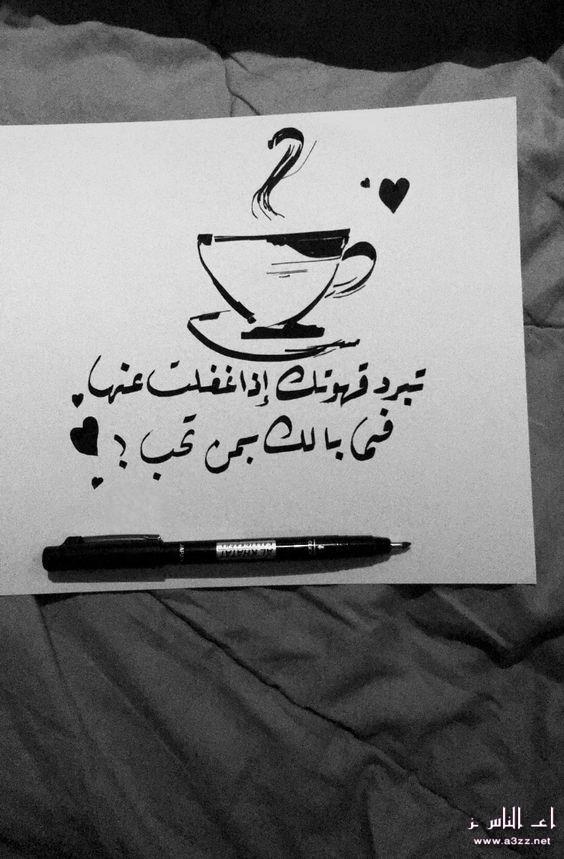 تبرد قهوتك إذا غفلت عنها
فما بالك بمن تحب ؟
www.a3zz.net